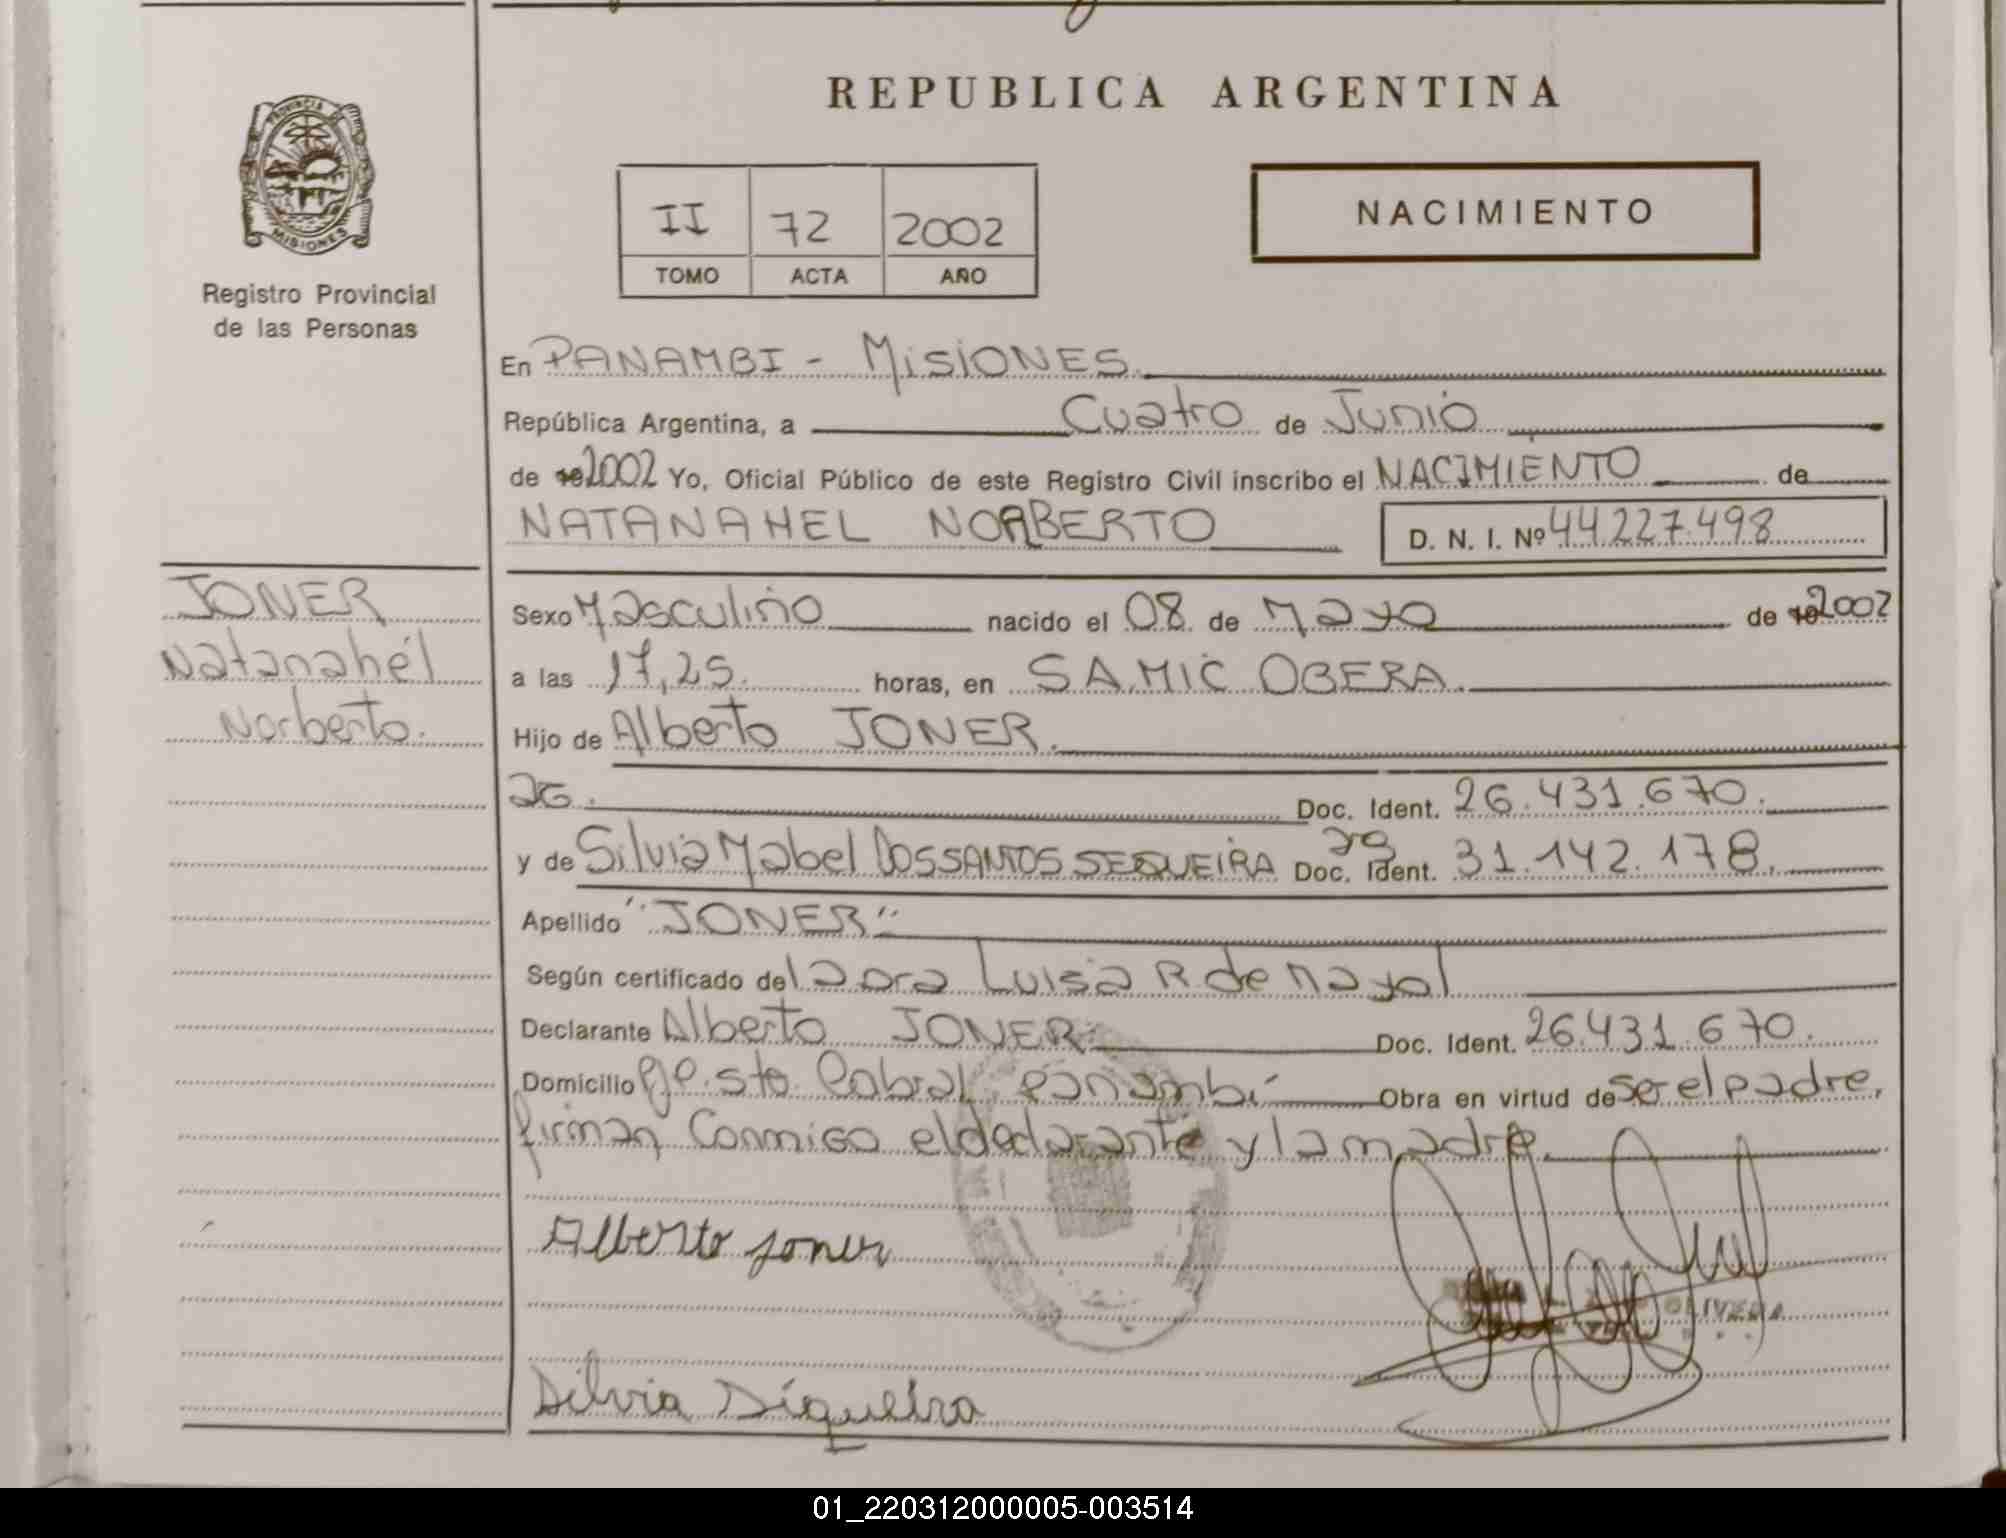 REPUBLICA ARGENTINA
PROVINCIA DE
MISIONES
Registro Provincial
de las Personas
II 72 2002
TOMO ACTA AÑO
NACIMIENTO
En PANAMBI - MISIONES.
República Argentina, a Cuatro de Junio
de 19 2002 Yo, Oficial Público de este Registro Civil inscribo el NACIMIENTO de
NATANAHEL NORBERTO D. N. I. Nº 44.227.498
JONER
Natanahél
Norberto.
Sexo Masculino nacido el 08 de Mayo de 19 2002
a las 17,25. horas, en SAMIC OBERA.
Hijo de Alberto JONER.
ag. Doc. Ident. 26.431.670.
y de Silvia Mabel DOSSANTOS SEQUEIRA ag Doc. Ident. 31.142.178.
Apellido "JONER"
Según certificado de la Dra Luisa R de Mayol
Declarante Alberto JONER Doc. Ident. 26.431.670.
Domicilio Pje. Sto. Cabral Panambí Obra en virtud de ser el padre,
firman Conmigo el declarante y la madre.
Alberto Joner
OLIVERA
Silvia Siqueira
01_220312000005-003514